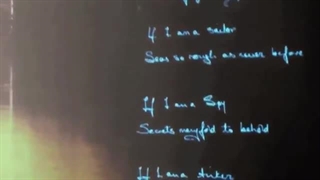 If I am a sailor
Seas so rough as never before
If I am a Spy
Secrets to behold
If I am a